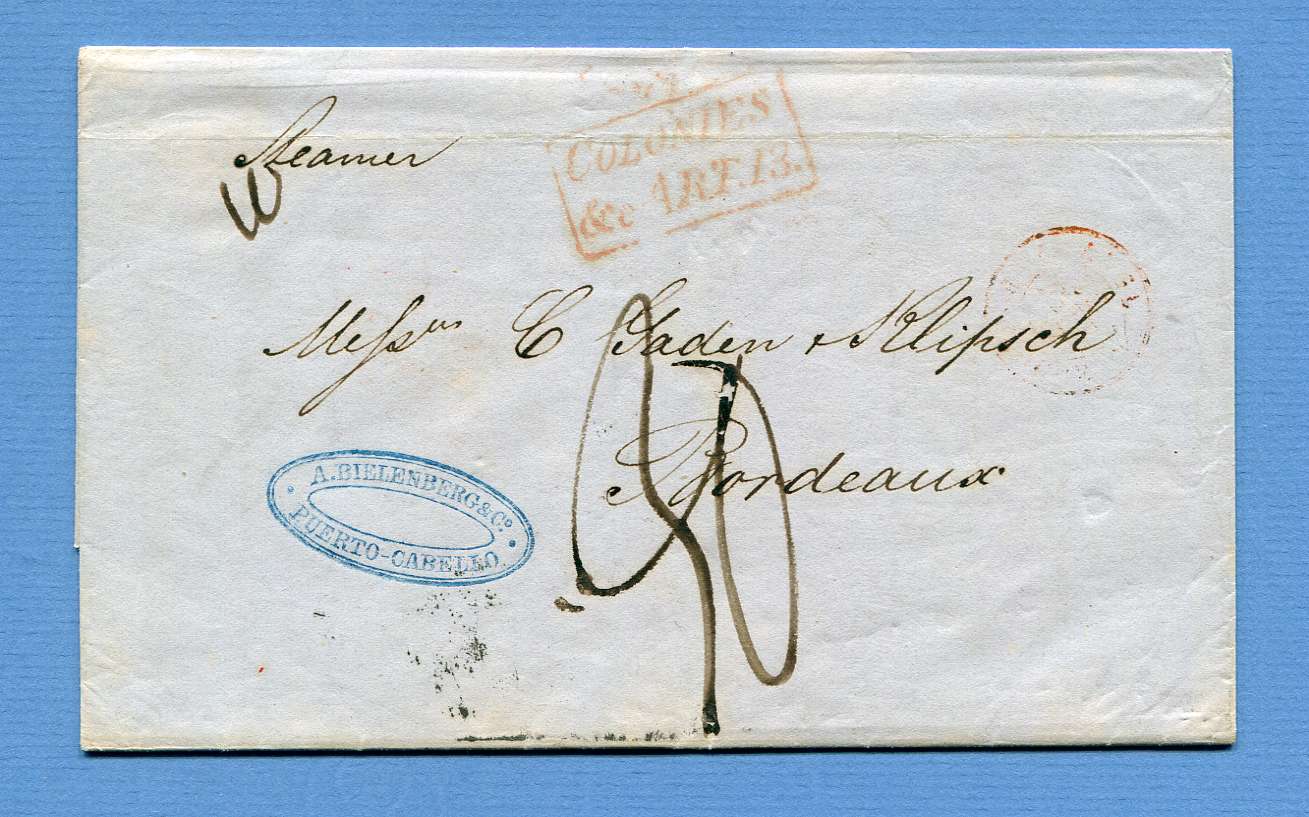 COLONIES
&c ART. 13.
Steamer
Messrs C Gaden & Klipsch
Bordeaux
A. BIELENBERG & Co.
PUERTO-CABELLO